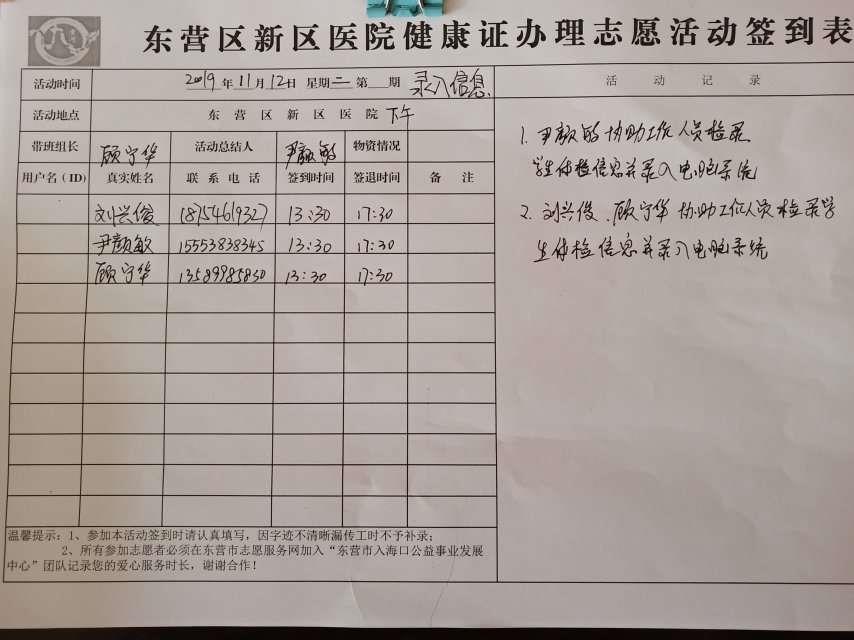 东营区新区医院健康证办理志愿活动签到表
活动时间 2019年11月12日 星期二 第 期 录入信息
活动地点 东营区新区医院 下午
带班组长 顾守华 活动总结人 尹颜敏 物资情况
用户名(ID) 真实姓名 联系电话 签到时间 签退时间 备注
刘兴俊 18754619327 13:30 17:30
尹颜敏 15553838345 13:30 17:30
顾守华 13589985830 13:30 17:30
温馨提示:1、参加本活动签到时请认真填写,因字迹不清晰漏传工时不予补录;
2、所有参加志愿者必须在东营市志愿服务网加入“东营市入海口公益事业发展
中心”团队记录您的爱心服务时长,谢谢合作!
活动记录
1. 尹颜敏协助工作人员检录
学生体检信息并录入电脑系统
2. 刘兴俊、顾守华协助工作人员检录学
生体检信息并录入电脑系统